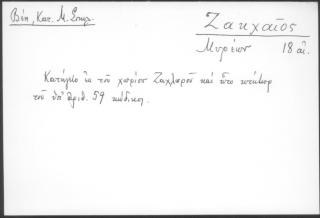 Βέη, Κατ. Μ. Σπηλ.
Ζακχαῖος
Μυρέων 18 αἰ.
Κατήγετο ἐκ τοῦ χωρίου Ζαχλωροῦ καὶ ἦτο κτήτωρ
τοῦ ὑπ' ἀριθ. 59 κώδικος.